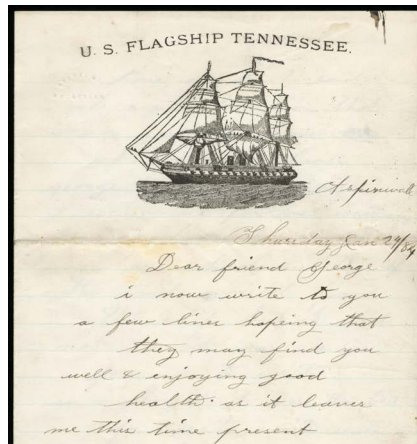 U. S. FLAGSHIP TENNESSEE.
Aspinwall
Thursday Jan 24/84
Dear friend George
i now write to you
a few lines hopeing that
they may find you
well & enjoying good
health as it leaves
me this time present